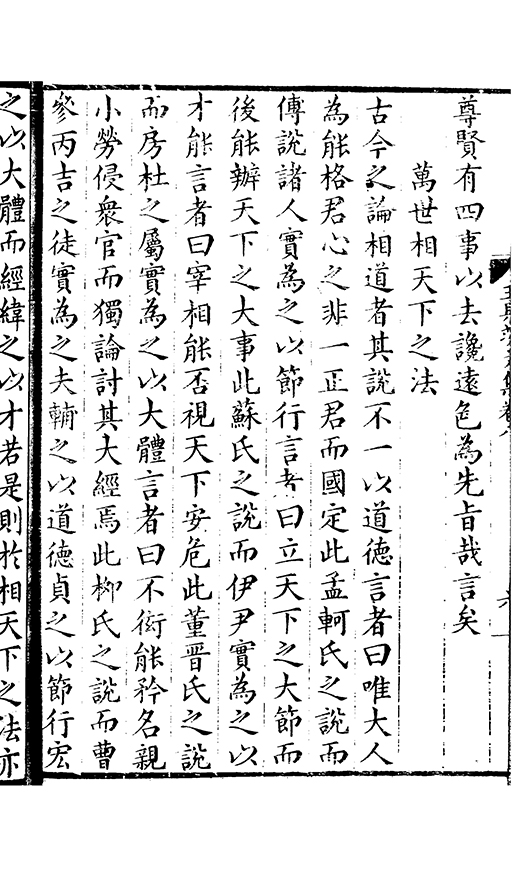 尊賢有四事以去讒遠色為先旨哉言矣
萬世相天下之法
古今之論相道者其說不一以道德言者曰唯大人
為能格君心之非一正君而國定此孟軻氏之說而
傅說諸人實為之以節行言者曰立天下之大節而
後能辦天下之大事此蘇氏之說而伊尹實為之以
才能言者曰宰相能否視天下安危此董晉氏之說
而房杜之屬實為之以大體言者曰不衒能矜名親
小勞侵衆官而獨論討其大經焉此柳氏之說而曹
參丙吉之徒實為之夫輔之以道德貞之以節行宏
之以大體而經緯之以才若是則於相天下之法亦